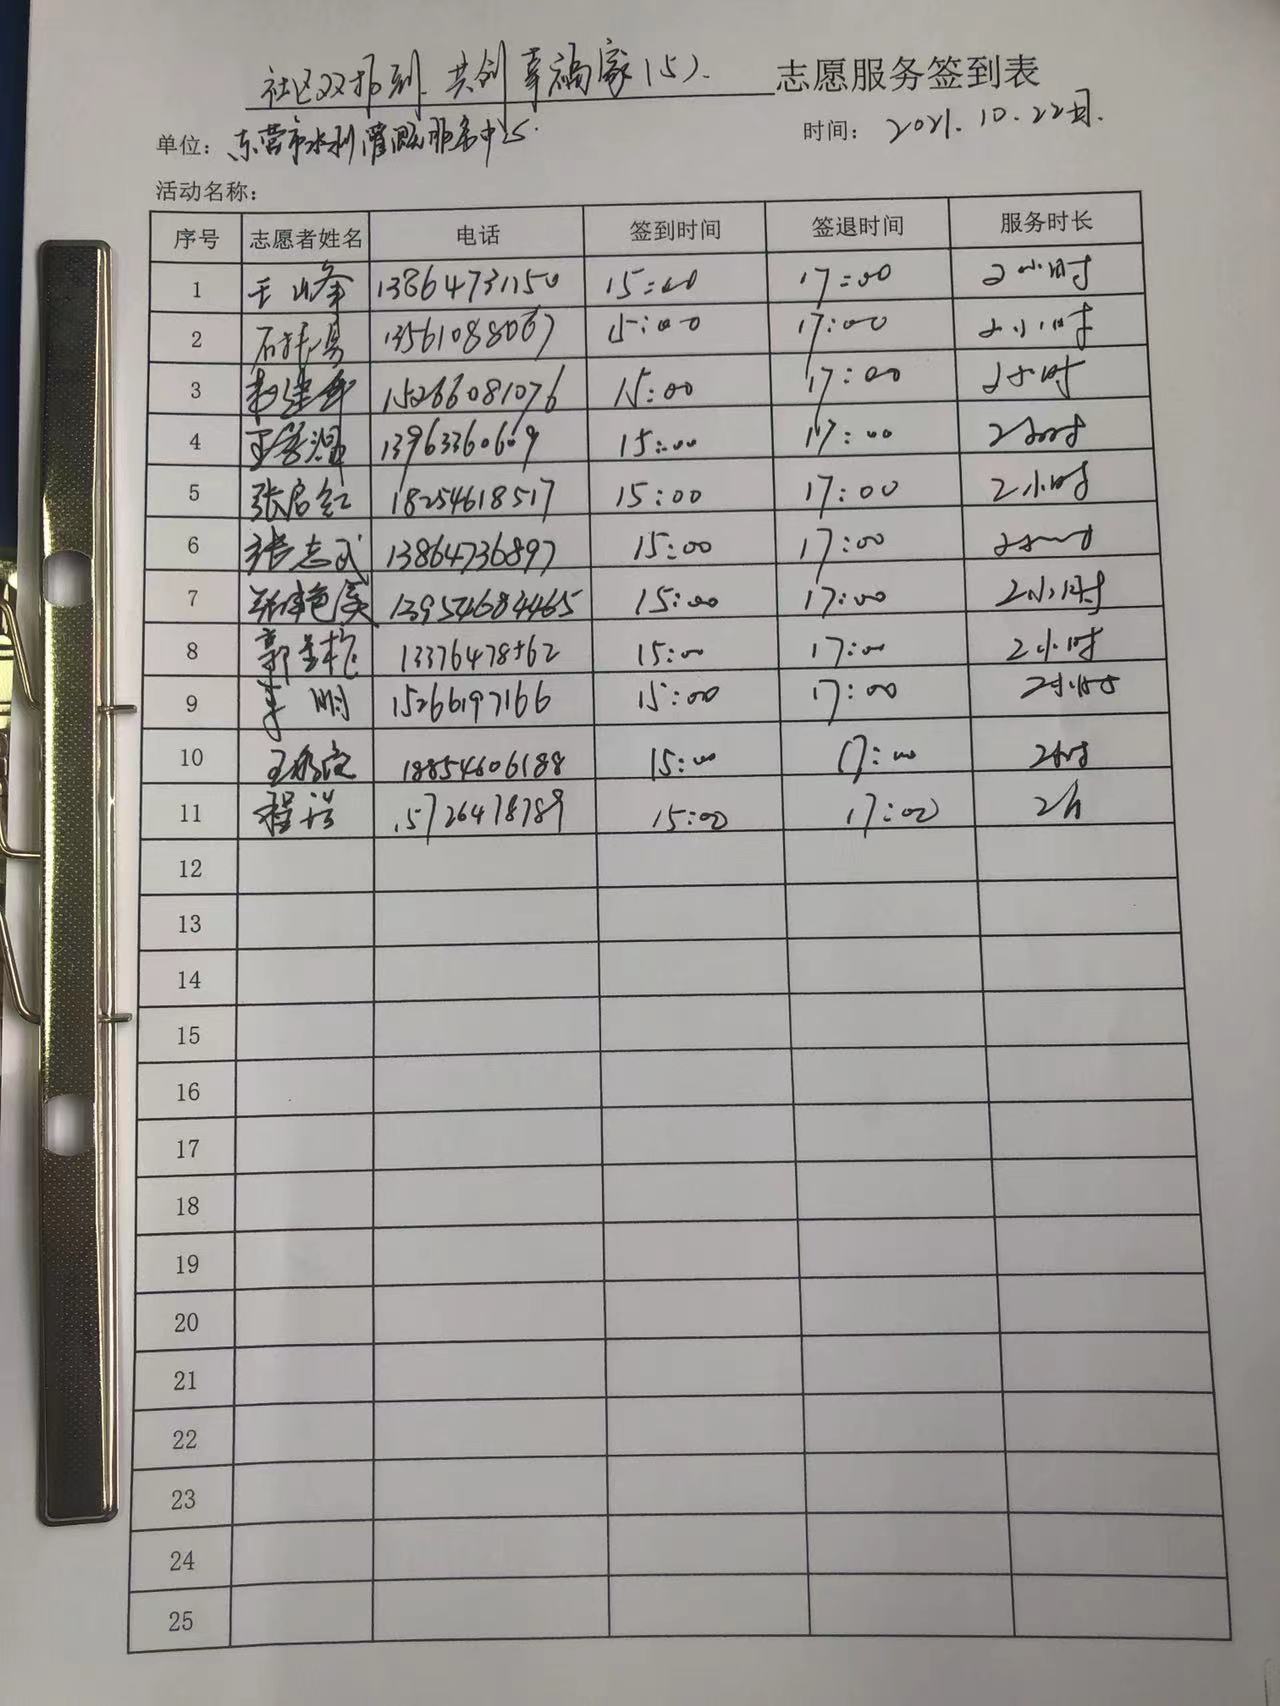 社区双报到 共创幸福家(5). 志愿服务签到表
单位: 东营市水利灌溉服务中心. 时间: 2021.10.22日.
活动名称:
序号 志愿者姓名 电话 签到时间 签退时间 服务时长
1 王山峰 13864731150 15:00 17:00 2小时
2 13561088067 15:00 17:00 2小时
3 15266081076 15:00 17:00 2小时
4 13963360609 15:00 17:00 2小时
5 张启红 18254618517 15:00 17:00 2小时
6 张志武 13864736897 15:00 17:00 2小时
7 13954684465 15:00 17:00 2小时
8 15:00 17:00 2小时
9 李鹏 15266197166 15:00 17:00 2小时
10 18854606188 15:00 17:00 2小时
11 程浩 15726478789 15:00 17:00 2h
12
13
14
15
16
17
18
19
20
21
22
23
24
25